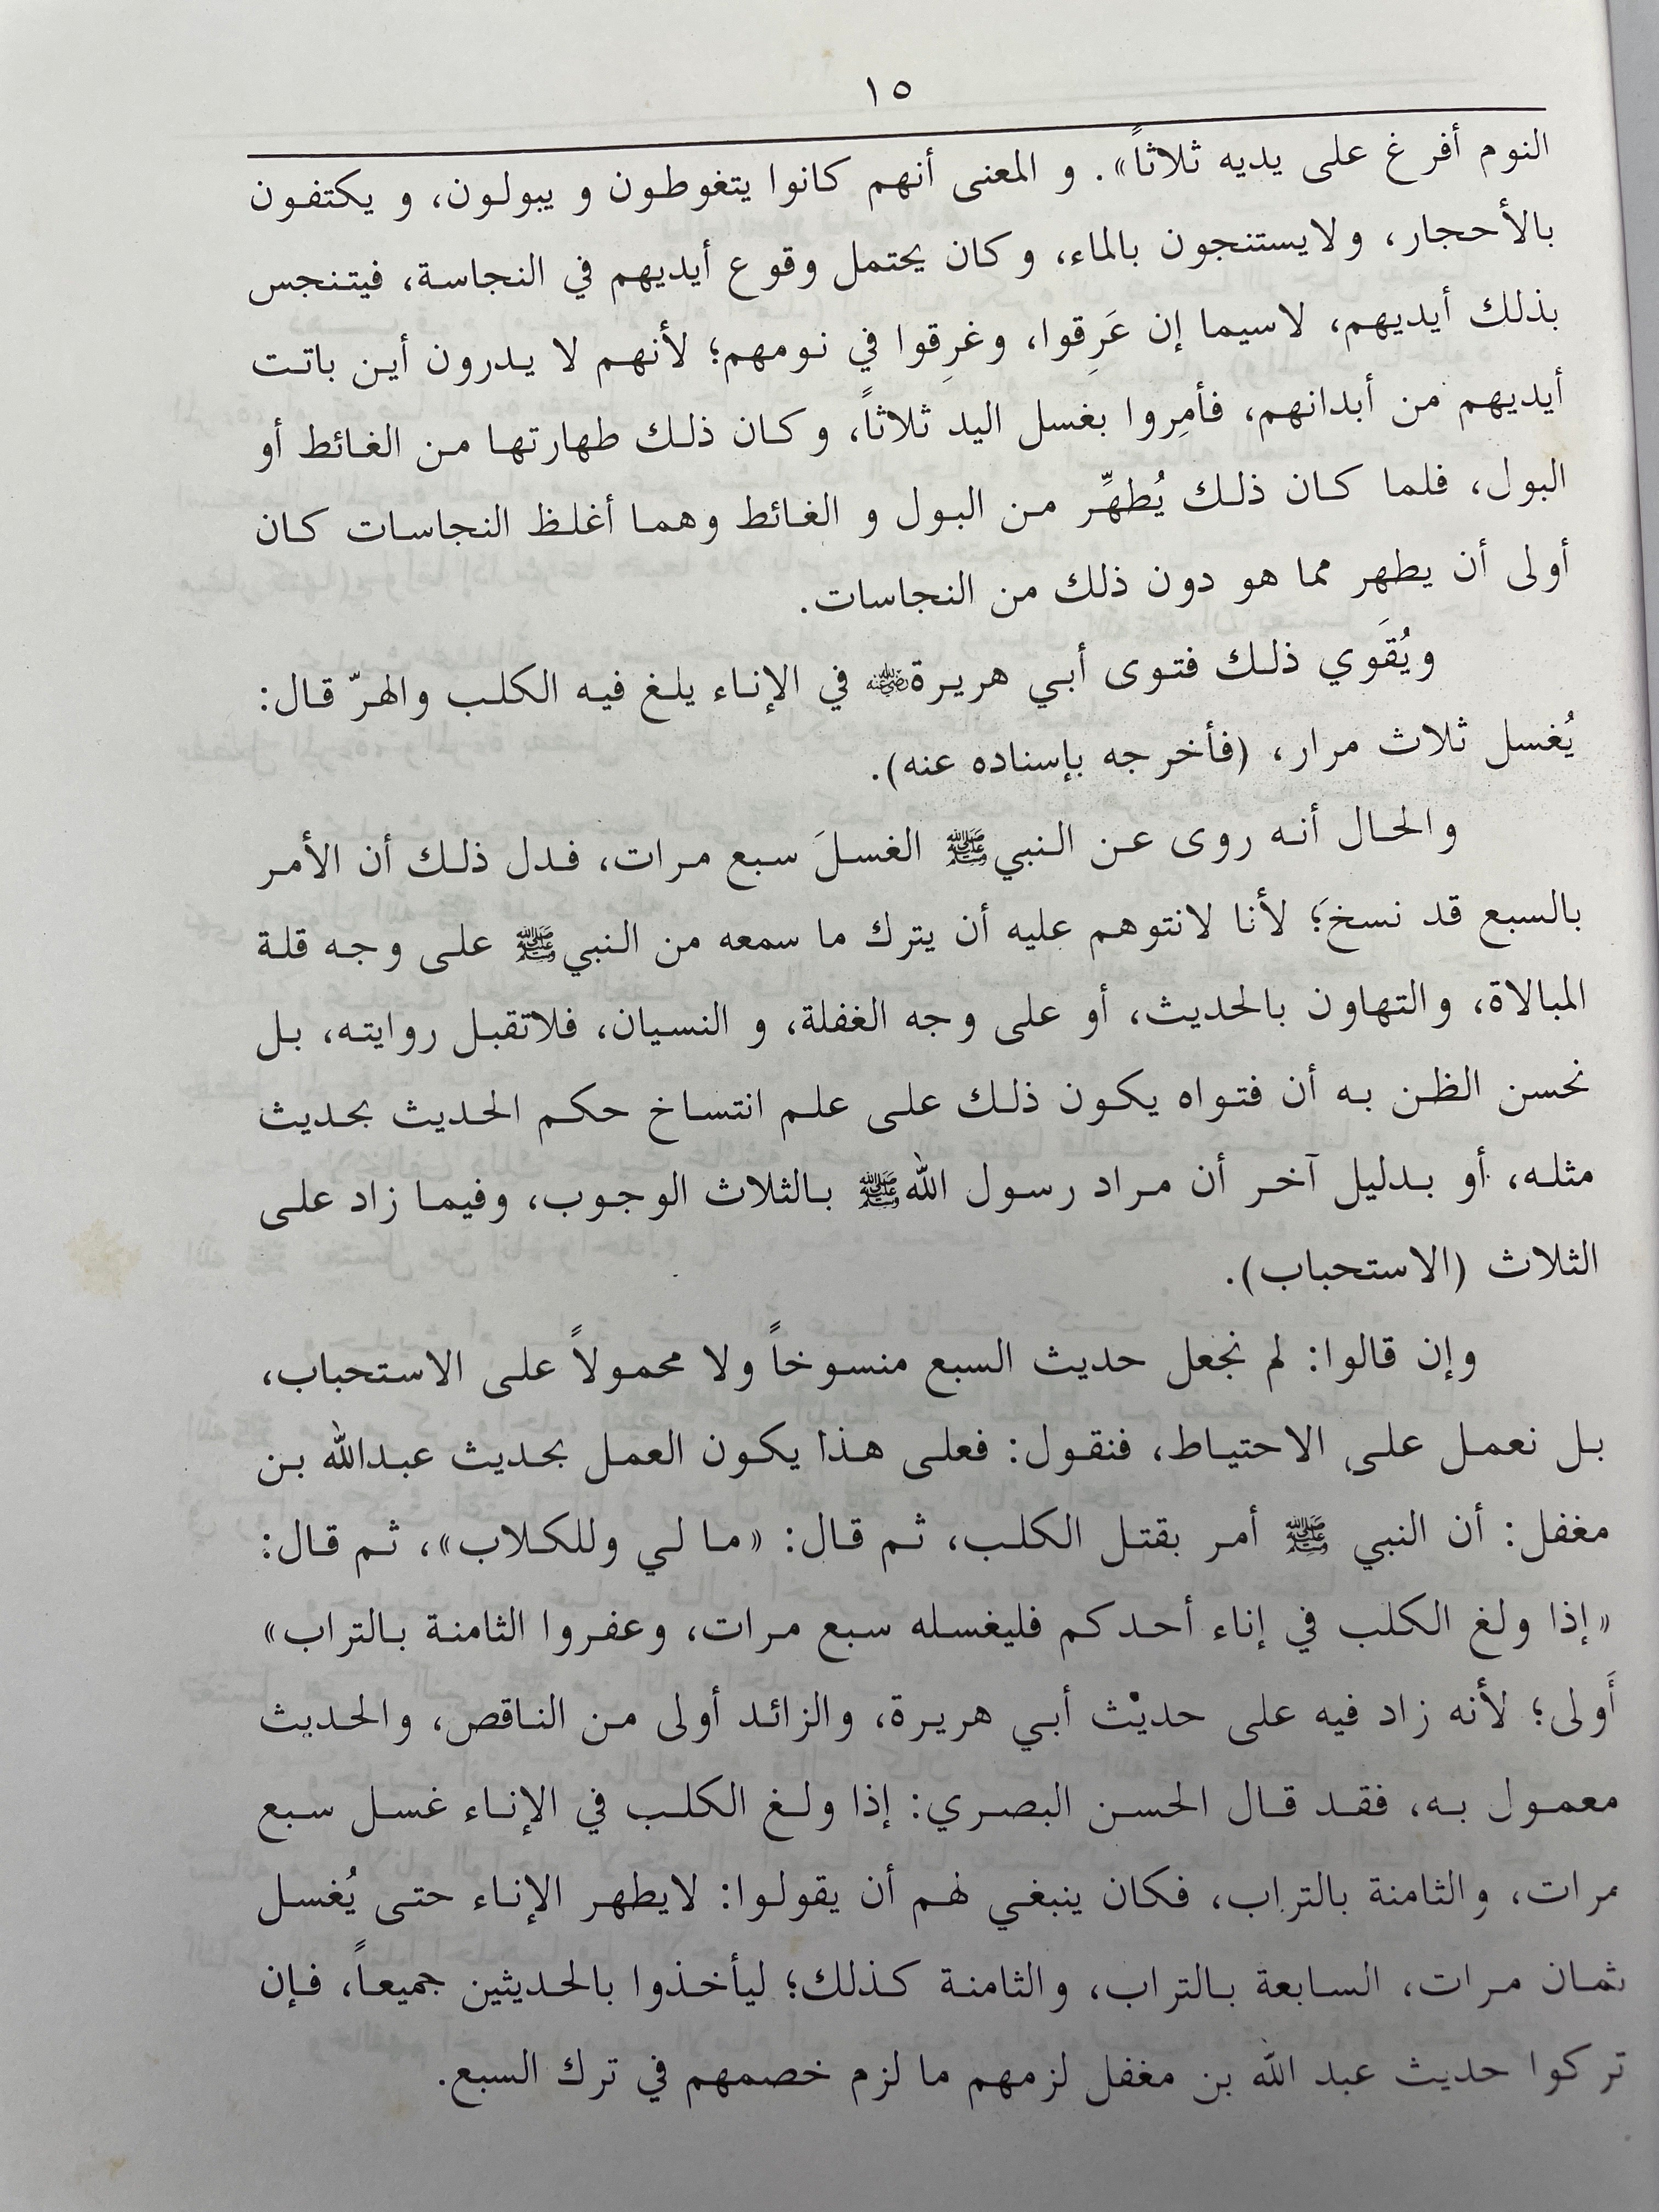 ١٥
النوم أفرغ على يديه ثلاثاً». و المعنى أنهم كانوا يتغوطون و يبولون، و يكتفون
بالأحجار، ولايستنجون بالماء، وكان يحتمل وقوع أيديهم في النجاسة، فيتنجس
بذلك أيديهم، لاسيما إن عَرِقوا، وغرِقوا في نومهم؛ لأنهم لا يدرون أين باتت
أيديهم من أبدانهم، فأمِروا بغسل اليد ثلاثاً، وكان ذلك طهارتها من الغائط أو
البول، فلما كان ذلك يُطهِّر من البول و الغائط وهما أغلظ النجاسات كان
أولى أن يطهر مما هو دون ذلك من النجاسات.
ويُقَوي ذلك فتوى أبي هريرة ﷺ في الإناء يلغ فيه الكلب والهرّ قال:
يُغسل ثلاث مرار، (فأخرجه بإسناده عنه).
والحال أنه روى عن النبي ﷺ الغسلَ سبع مرات، فدل ذلك أن الأمر
بالسبع قد نسخَ؛ لأنا لانتوهم عليه أن يترك ما سمعه من النبي ﷺ على وجه قلة
المبالاة، والتهاون بالحديث، أو على وجه الغفلة، و النسيان، فلاتقبل روايته، بل
نحسن الظن به أن فتواه يكون ذلك على علم انتساخ حكم الحديث بحديث
مثله، أو بدليل آخر أن مراد رسول الله ﷺ بالثلاث الوجوب، وفيما زاد على
الثلاث (الاستحباب).
وإن قالوا: لم نجعل حديث السبع منسوخاً ولا محمولاً على الاستحباب،
بل نعمل على الاحتياط، فنقول: فعلى هذا يكون العمل بحديث عبدالله بن
مغفل: أن النبي ﷺ أمر بقتل الكلب، ثم قال: «ما لي وللكلاب»، ثم قال:
«إذا ولغ الكلب في إناء أحدكم فليغسله سبع مرات، وعفروا الثامنة بالتراب»
أَولى؛ لأنه زاد فيه على حديْث أبي هريرة، والزائد أولى من الناقص، والحديث
معمول به، فقد قال الحسن البصري: إذا ولغ الكلب في الإناء غسل سبع
مرات، والثامنة بالتراب، فكان ينبغي لهم أن يقولوا: لايطهر الإناء حتى يُغسل
ثمان مرات، السابعة بالتراب، والثامنة كذلك؛ ليأخذوا بالحديثين جميعاً، فإن
تركوا حديث عبد الله بن مغفل لزمهم ما لزم خصمهم في ترك السبع.